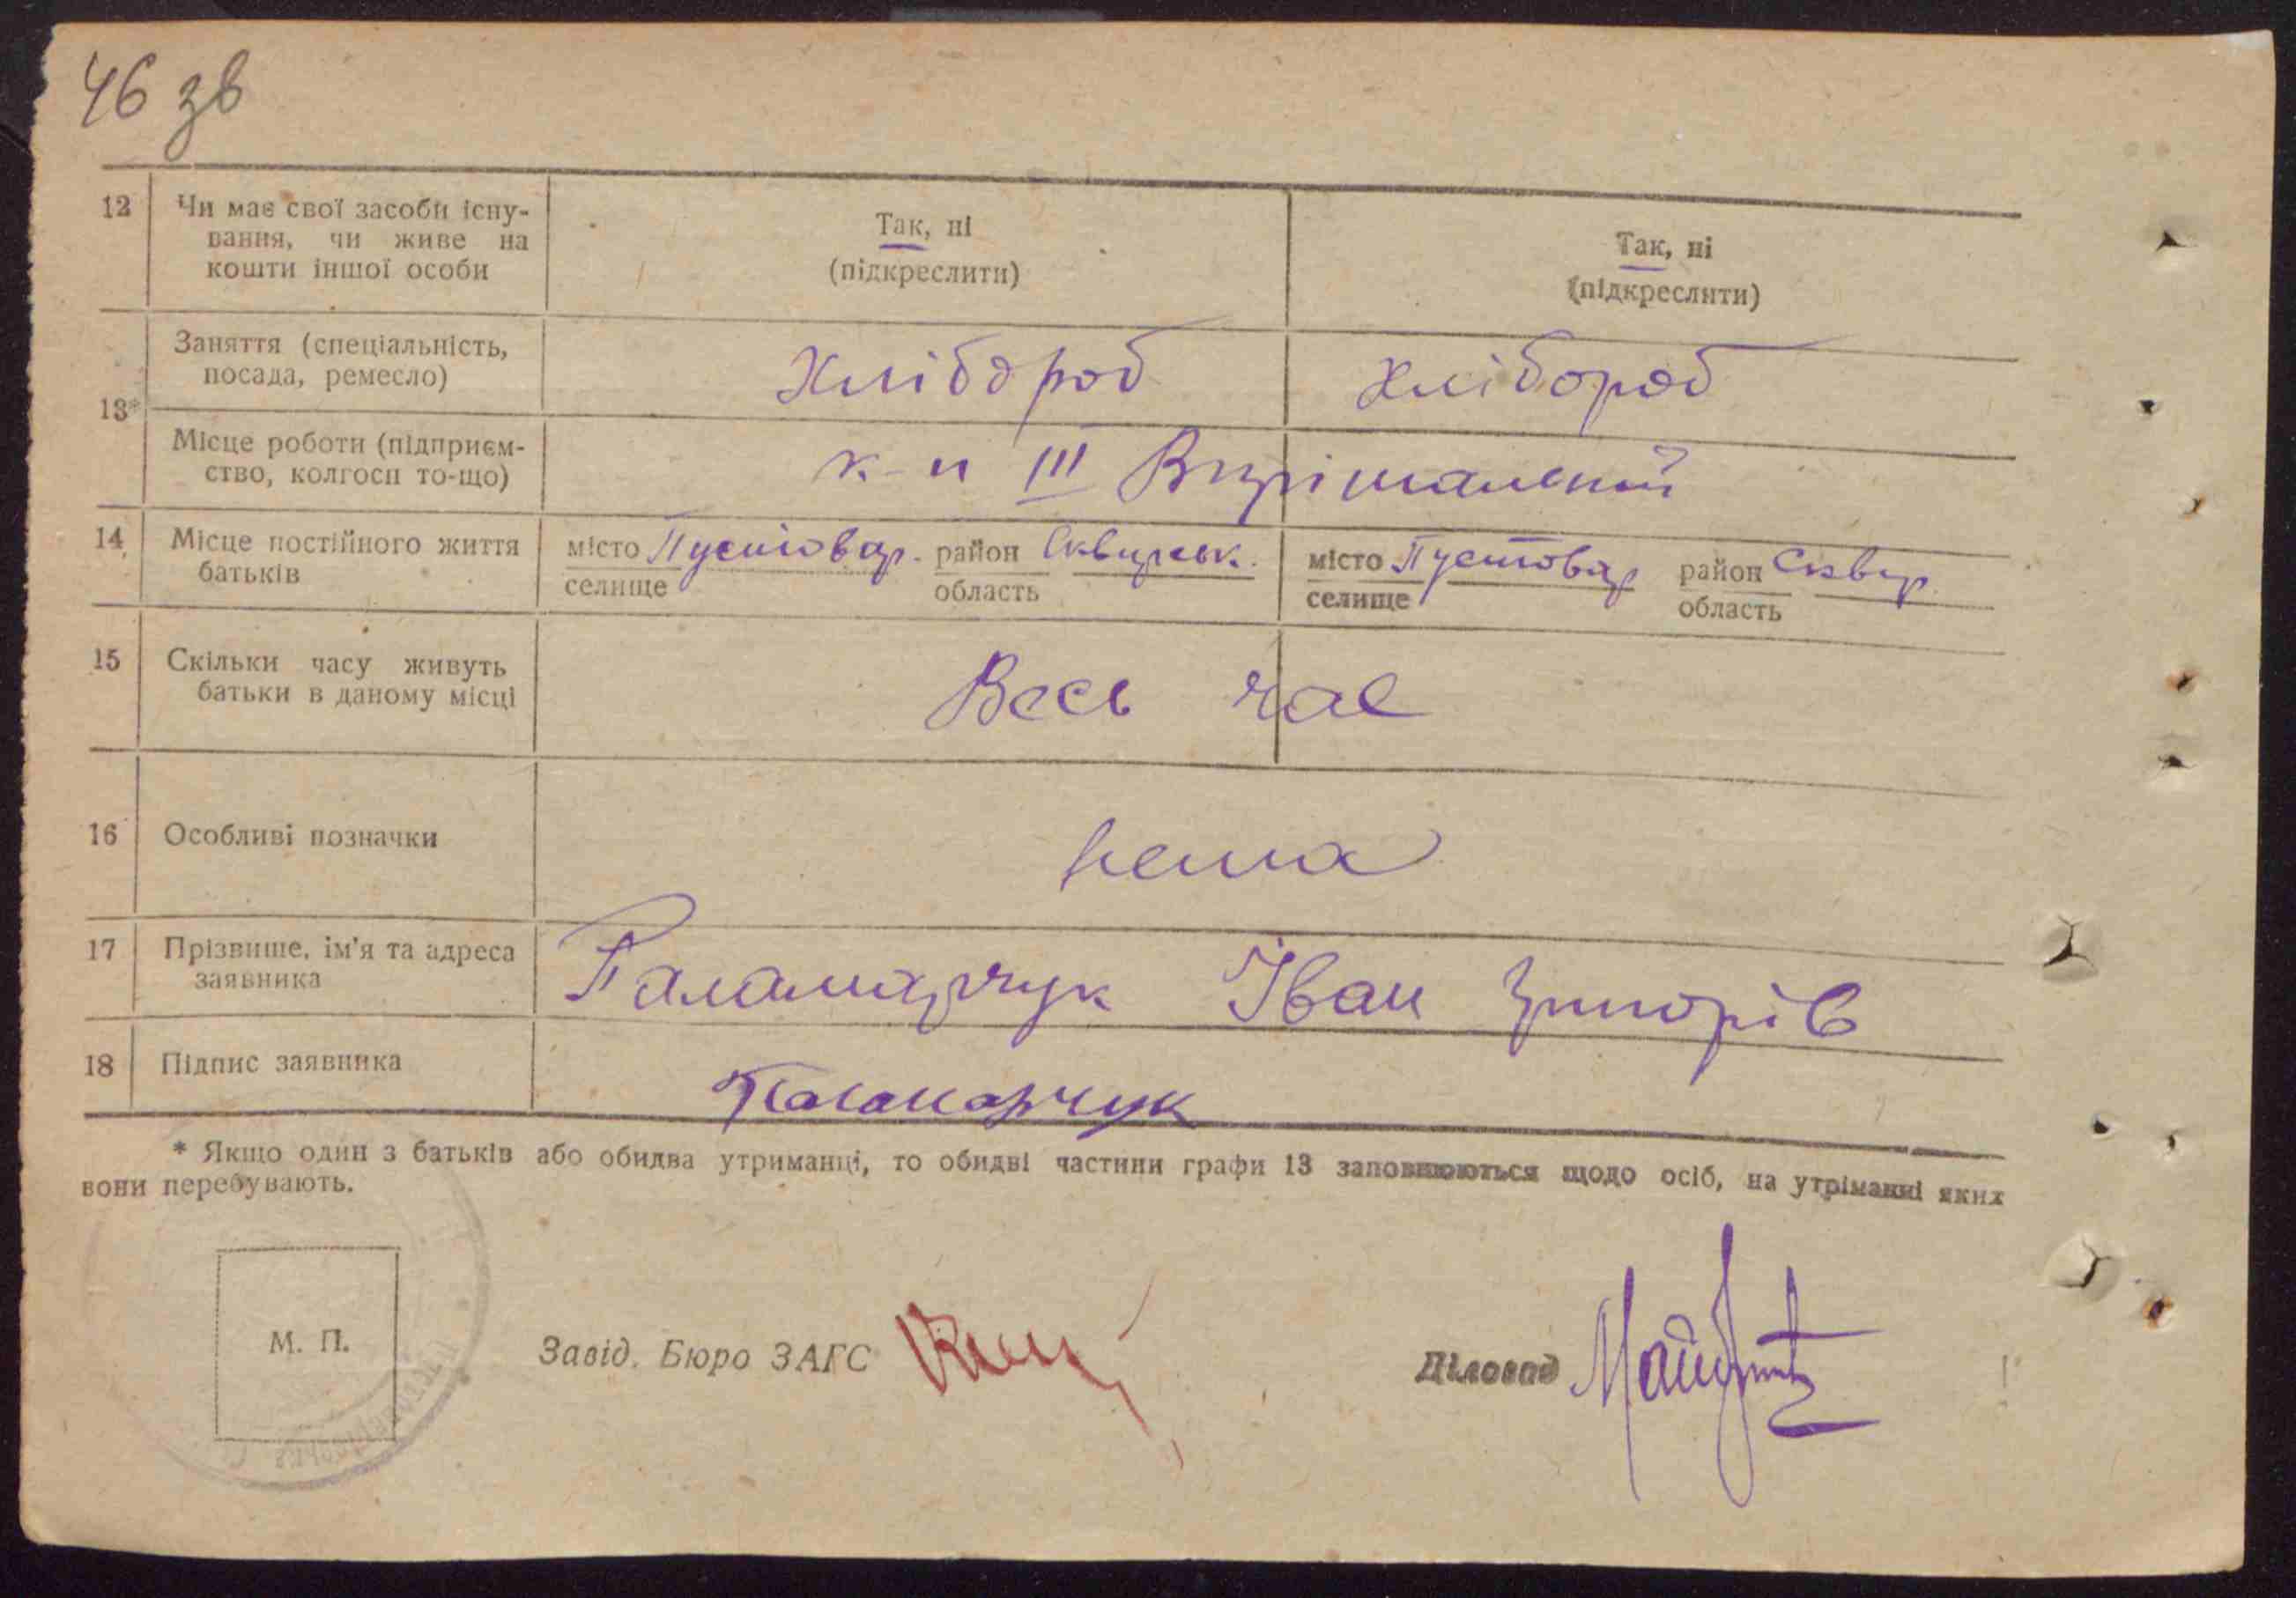 46 зв
12 Чи має свої засоби існу- Так, ні Так, ні
вання, чи живе на
кошти іншої особи (підкреслити) (підкреслити)
13* Заняття (спеціальність, Хлібороб Хлібороб
посада, ремесло)
Місце роботи (підприєм- к-п III Вирішальний
ство, колгосп то-що)
14 Місце постійного життя місто Пустовар. район Сквирськ. місто Пустовар район Сквир.
батьків селище область селище область
15 Скільки часу живуть Весь час
батьки в даному місці
16 Особливі позначки нема
17 Прізвище, ім'я та адреса Паламарчук Іван Григорів
заявника
18 Підпис заявника Паламарчук
* Якщо один з батьків або обидва утриманці, то обидві частини графи 13 заповнюються щодо осіб, на утріманні яких
вони перебувають.
М. П. Завід. Бюро ЗАГС Діловод